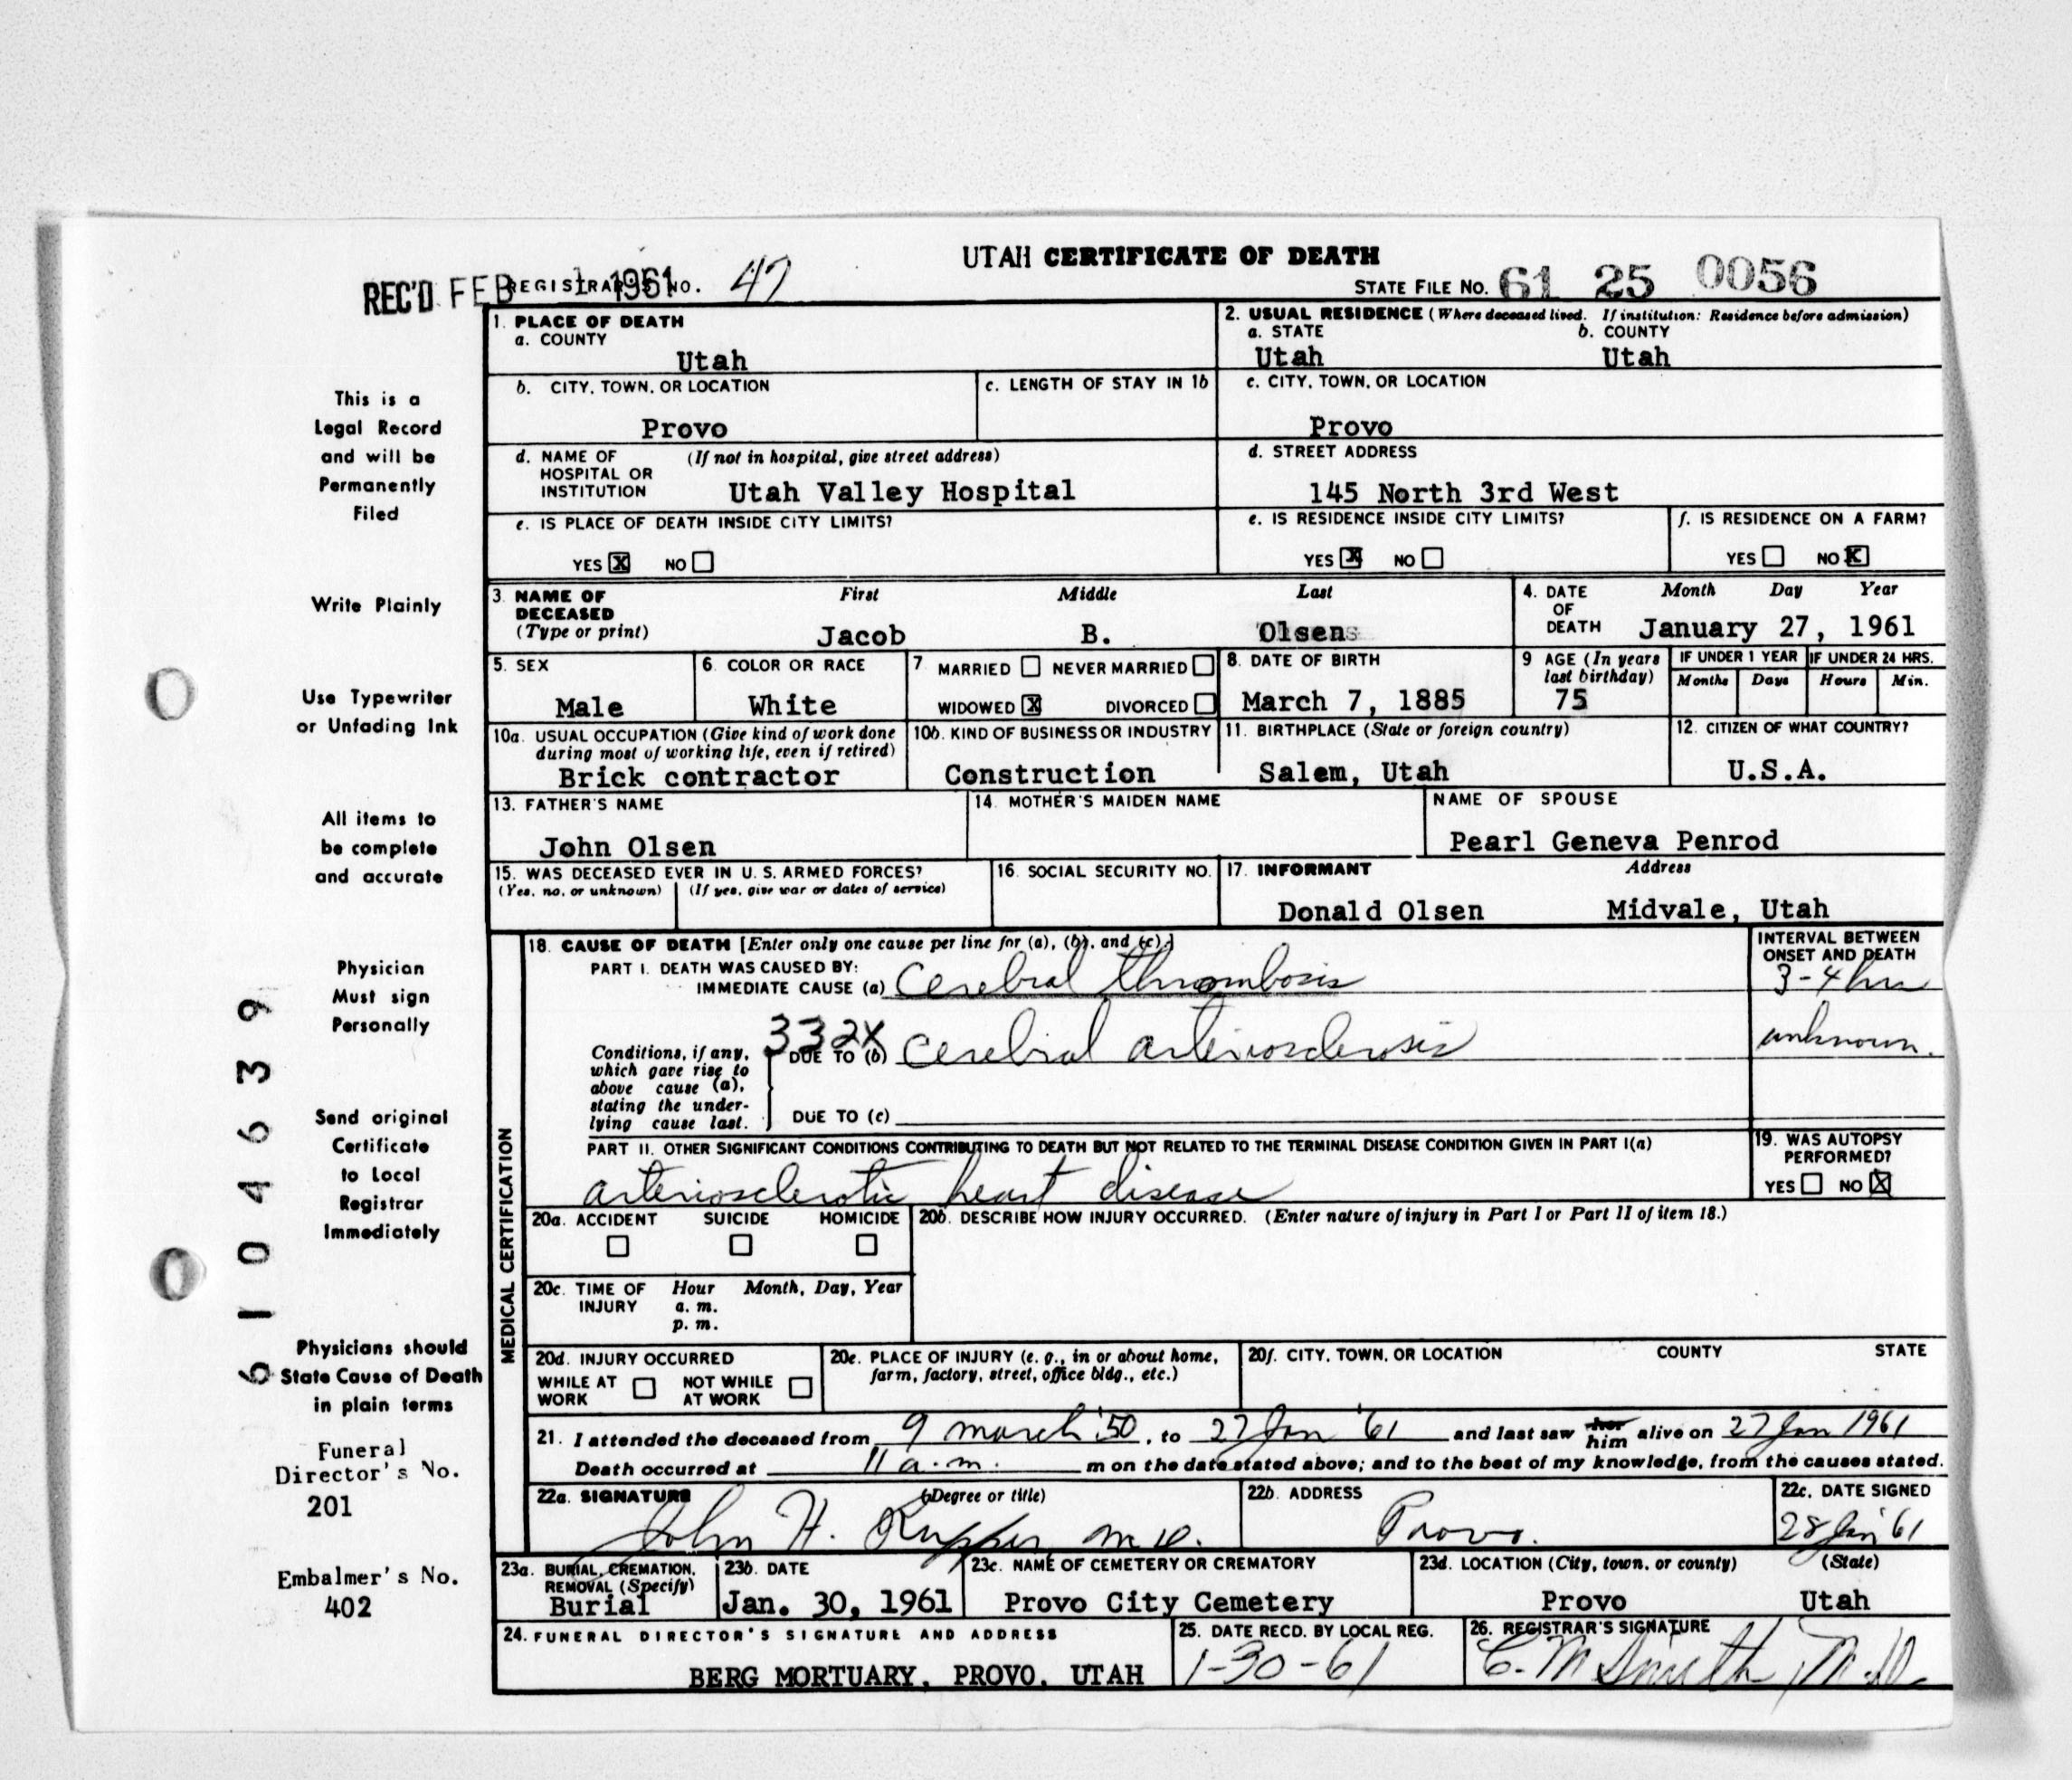 UTAH CERTIFICATE OF DEATH
REC'D FEB 1 1961 REGISTRAR'S NO. 47
STATE FILE NO. 61 25 0056
1. PLACE OF DEATH
a. COUNTY
Utah
2. USUAL RESIDENCE (Where deceased lived. If institution: Residence before admission)
a. STATE b. COUNTY
Utah Utah
b. CITY, TOWN, OR LOCATION
Provo
c. LENGTH OF STAY IN 1b
c. CITY, TOWN, OR LOCATION
Provo
d. NAME OF HOSPITAL OR INSTITUTION (If not in hospital, give street address)
Utah Valley Hospital
d. STREET ADDRESS
145 North 3rd West
e. IS PLACE OF DEATH INSIDE CITY LIMITS?
YES X NO
e. IS RESIDENCE INSIDE CITY LIMITS?
YES X NO
f. IS RESIDENCE ON A FARM?
YES NO X
3. NAME OF DECEASED (Type or print)
First Middle Last
Jacob B. Olsen
4. DATE OF DEATH Month Day Year
January 27, 1961
5. SEX
Male
6. COLOR OR RACE
White
7 MARRIED NEVER MARRIED
WIDOWED X DIVORCED
8. DATE OF BIRTH
March 7, 1885
9 AGE (In years last birthday)
75
IF UNDER 1 YEAR IF UNDER 24 HRS.
Months Days Hours Min.
10a. USUAL OCCUPATION (Give kind of work done during most of working life, even if retired)
Brick contractor
10b. KIND OF BUSINESS OR INDUSTRY
Construction
11. BIRTHPLACE (State or foreign country)
Salem, Utah
12. CITIZEN OF WHAT COUNTRY?
U.S.A.
13. FATHER'S NAME
John Olsen
14. MOTHER'S MAIDEN NAME
NAME OF SPOUSE
Pearl Geneva Penrod
15. WAS DECEASED EVER IN U.S. ARMED FORCES?
(Yes, no, or unknown) (If yes, give war or dates of service)
16. SOCIAL SECURITY NO.
17. INFORMANT Address
Donald Olsen Midvale, Utah
MEDICAL CERTIFICATION
18. CAUSE OF DEATH [Enter only one cause per line for (a), (b), and (c).]
INTERVAL BETWEEN ONSET AND DEATH
PART I. DEATH WAS CAUSED BY:
IMMEDIATE CAUSE (a) Cerebral thrombosis 3-4 hrs
332X
Conditions, if any, which gave rise to above cause (a), stating the underlying cause last.
DUE TO (b) Cerebral arteriosclerosis unknown.
DUE TO (c)
PART II. OTHER SIGNIFICANT CONDITIONS CONTRIBUTING TO DEATH BUT NOT RELATED TO THE TERMINAL DISEASE CONDITION GIVEN IN PART I(a)
arteriosclerotic heart disease
19. WAS AUTOPSY PERFORMED?
YES NO X
20a. ACCIDENT SUICIDE HOMICIDE
20b. DESCRIBE HOW INJURY OCCURRED. (Enter nature of injury in Part I or Part II of item 18.)
20c. TIME OF INJURY Hour Month, Day, Year
a. m.
p. m.
20d. INJURY OCCURRED
WHILE AT WORK NOT WHILE AT WORK
20e. PLACE OF INJURY (e. g., in or about home, farm, factory, street, office bldg., etc.)
20f. CITY, TOWN, OR LOCATION COUNTY STATE
21. I attended the deceased from 9 march '50, to 27 Jan '61 and last saw her him alive on 27 Jan 1961
Death occurred at 11 a.m. m on the date stated above; and to the best of my knowledge, from the causes stated.
22a. SIGNATURE (Degree or title)
John H. Rupper M.D.
22b. ADDRESS
Provo.
22c. DATE SIGNED
28 Jan '61
23a. BURIAL, CREMATION, REMOVAL (Specify)
Burial
23b. DATE
Jan. 30, 1961
23c. NAME OF CEMETERY OR CREMATORY
Provo City Cemetery
23d. LOCATION (City, town, or county) (State)
Provo Utah
24. FUNERAL DIRECTOR'S SIGNATURE AND ADDRESS
BERG MORTUARY, PROVO, UTAH
25. DATE RECD. BY LOCAL REG.
1-30-61
26. REGISTRAR'S SIGNATURE
C. M Smith, M.D.
This is a
Legal Record
and will be
Permanently
Filed
Write Plainly
Use Typewriter
or Unfading Ink
All items to
be complete
and accurate
Physician
Must sign
Personally
Send original
Certificate
to Local
Registrar
Immediately
Physicians should
State Cause of Death
in plain terms
Funeral
Director's No.
201
Embalmer's No.
402
6104639